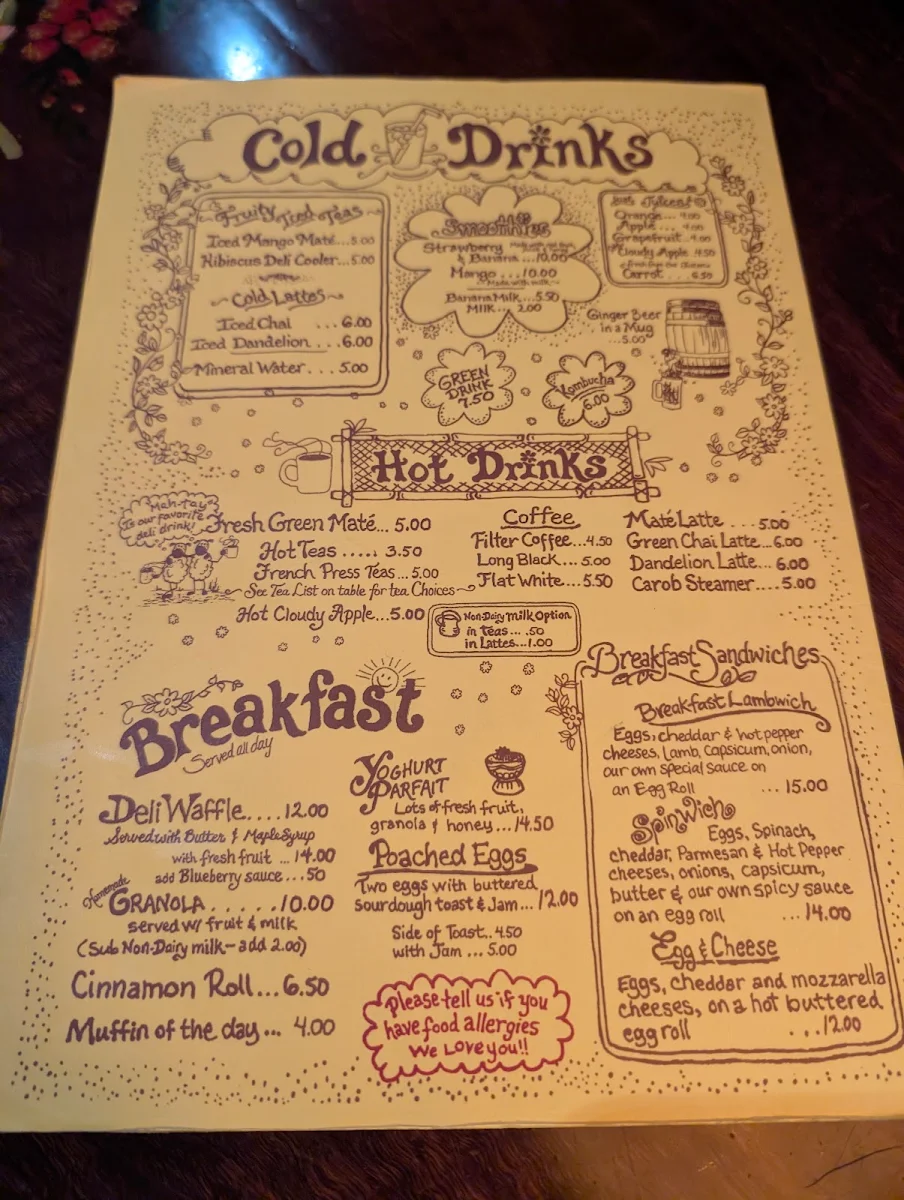 Cold Drinks
Fruity Iced Teas
Iced Mango Maté...5.00
Hibiscus Deli Cooler...5.00
Cold Lattes
Iced Chai ...6.00
Iced Dandelion ...6.00
Mineral Water ...5.00
Smoothies
Strawberry
& Banana ...10.00
Mango ...10.00
Made with milk
Banana Milk...5.50
Milk... 2.00
Juices
Orange... 4.00
Apple... 4.00
Grapefruit..4.00
Cloudy Apple 4.50
Carrot... 6.50
Ginger Beer
in a Mug
...5.00
GREEN
DRINK
7.50
Kombucha
6.00
Hot Drinks
Mah-tay
Is our favorite
deli drink!
Fresh Green Maté... 5.00
Hot Teas ..... 3.50
French Press Teas...5.00
~See Tea List on table for tea Choices~
Hot Cloudy Apple...5.00
Coffee
Filter Coffee...4.50
Long Black...5.00
Flat White...5.50
Non-Dairy milk Option
in teas....50
in Lattes...1.00
Maté Latte ....5.00
Green Chai Latte...6.00
Dandelion Latte...6.00
Carob Steamer....5.00
Breakfast
Served all day
Deli Waffle....12.00
Served with Butter & Maple Syrup
with fresh fruit ...14.00
add Blueberry sauce...50
Homemade
GRANOLA......10.00
served w/ fruit & milk
(Sub Non-Dairy milk-add 2.00)
Cinnamon Roll...6.50
Muffin of the day... 4.00
YOGHURT
PARFAIT
Lots of fresh fruit,
granola & honey...14.50
Poached Eggs
Two eggs with buttered
sourdough toast & Jam...12.00
Side of Toast..4.50
with Jam ... 5.00
Please tell us if you
have food allergies
We Love you!!
Breakfast Sandwiches
Breakfast Lambwich
Eggs, cheddar & hot pepper
cheeses, Lamb, capsicum, onion,
our own special sauce on
an Egg Roll ...15.00
Spinwich
Eggs, Spinach,
cheddar, Parmesan & Hot Pepper
cheeses, onions, capsicum,
butter & our own spicy sauce
on an egg roll ...14.00
Egg & Cheese
Eggs, cheddar and mozzarella
cheeses, on a hot buttered
egg roll ...12.00